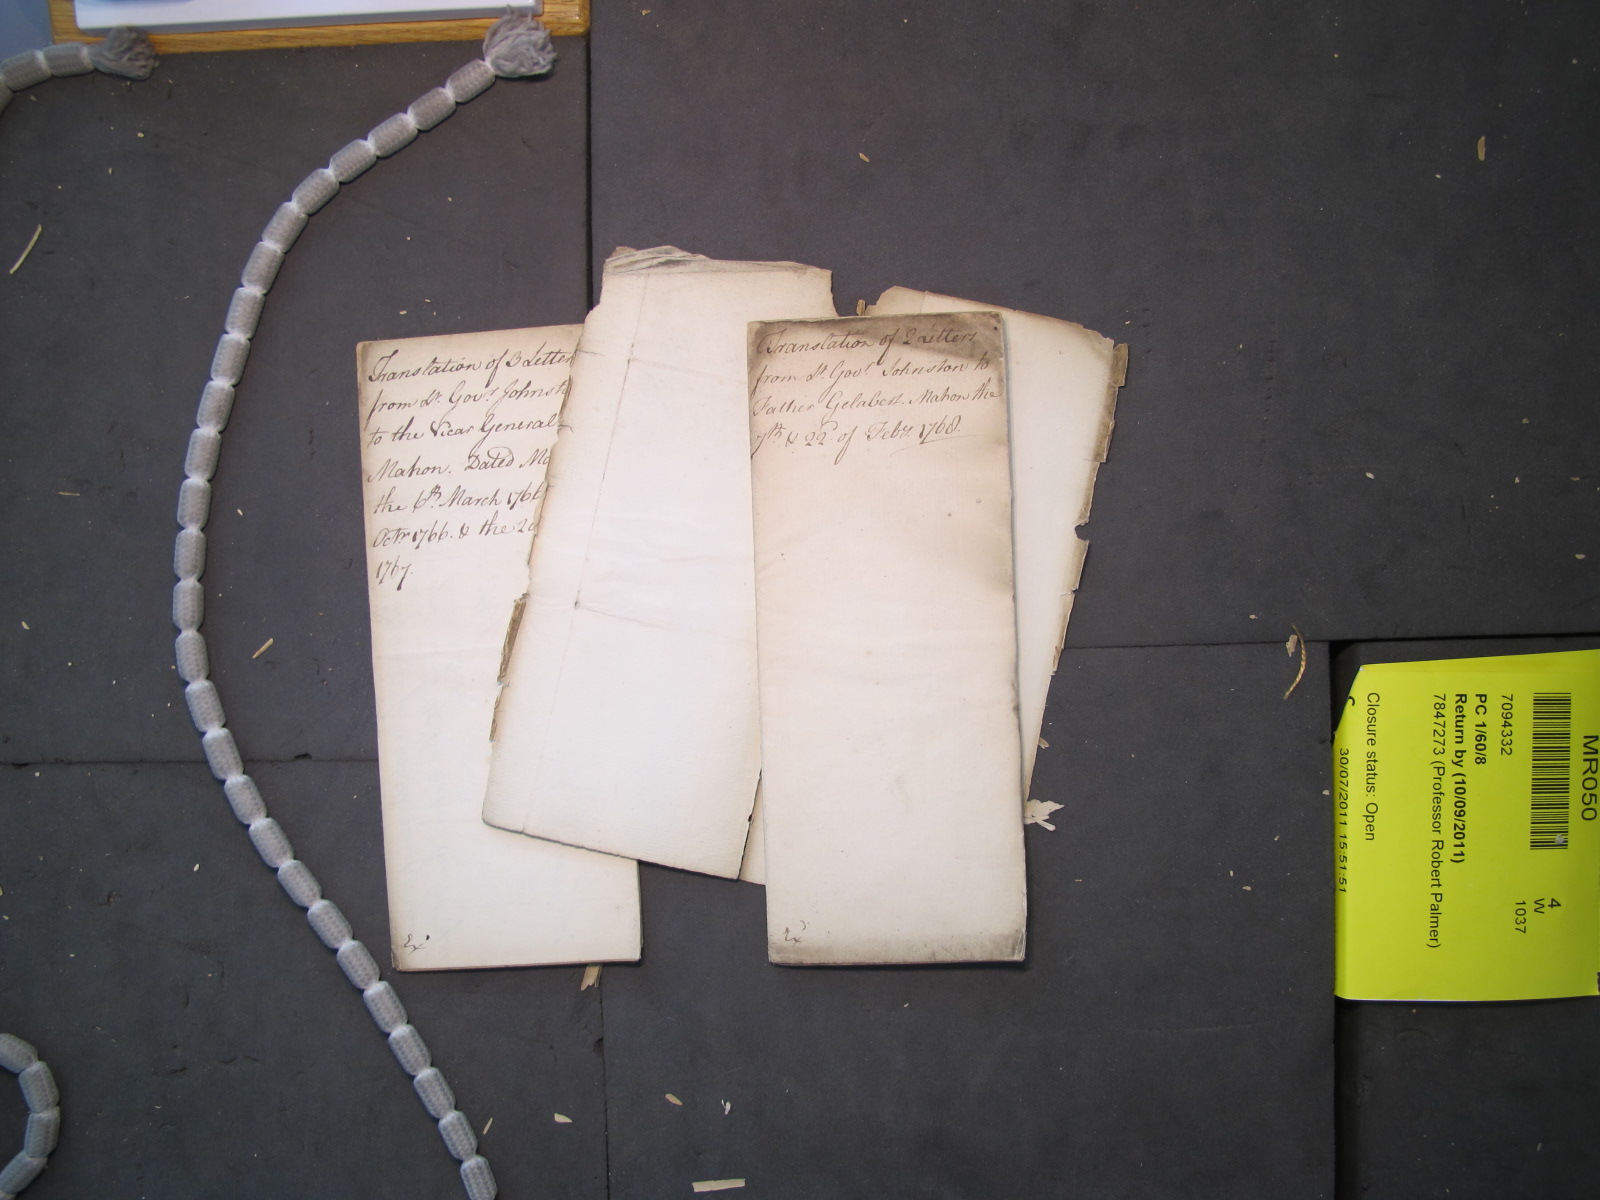 Translation of 3 Letter
from Lt. Govr. Johnst
to the Vicar General
Mahon. Dated Ma
the 6th March 1766
Octr. 1766. & the 2
1767.
Ex
Translation of 2 Letters
from Lt. Govr. Johnston to
Father Gelabert. Mahon the
7th & 22d. of Feby. 1768.
Ex
MR050
4
W
1037
7094332
PC 1/60/8
Return by (10/09/2011)
7847273 (Professor Robert Palmer)
Closure status: Open
30/07/2011 15:51:51